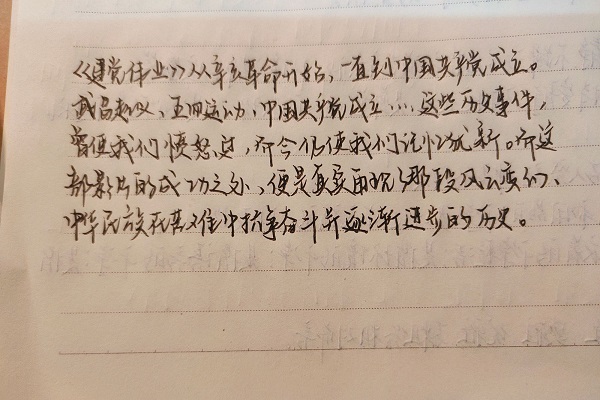 《建党伟业》从辛亥革命开始，一直到中国共产党成立。
武昌起义、五四运动、中国共产党成立……这些历史事件，
曾使我们愤怒过，而今仍使我们记忆犹新。而这
部影片的成功之处、便是真实再现了那段风云变幻、
中华民族在苦难中抗争奋斗并逐渐进步的历史。